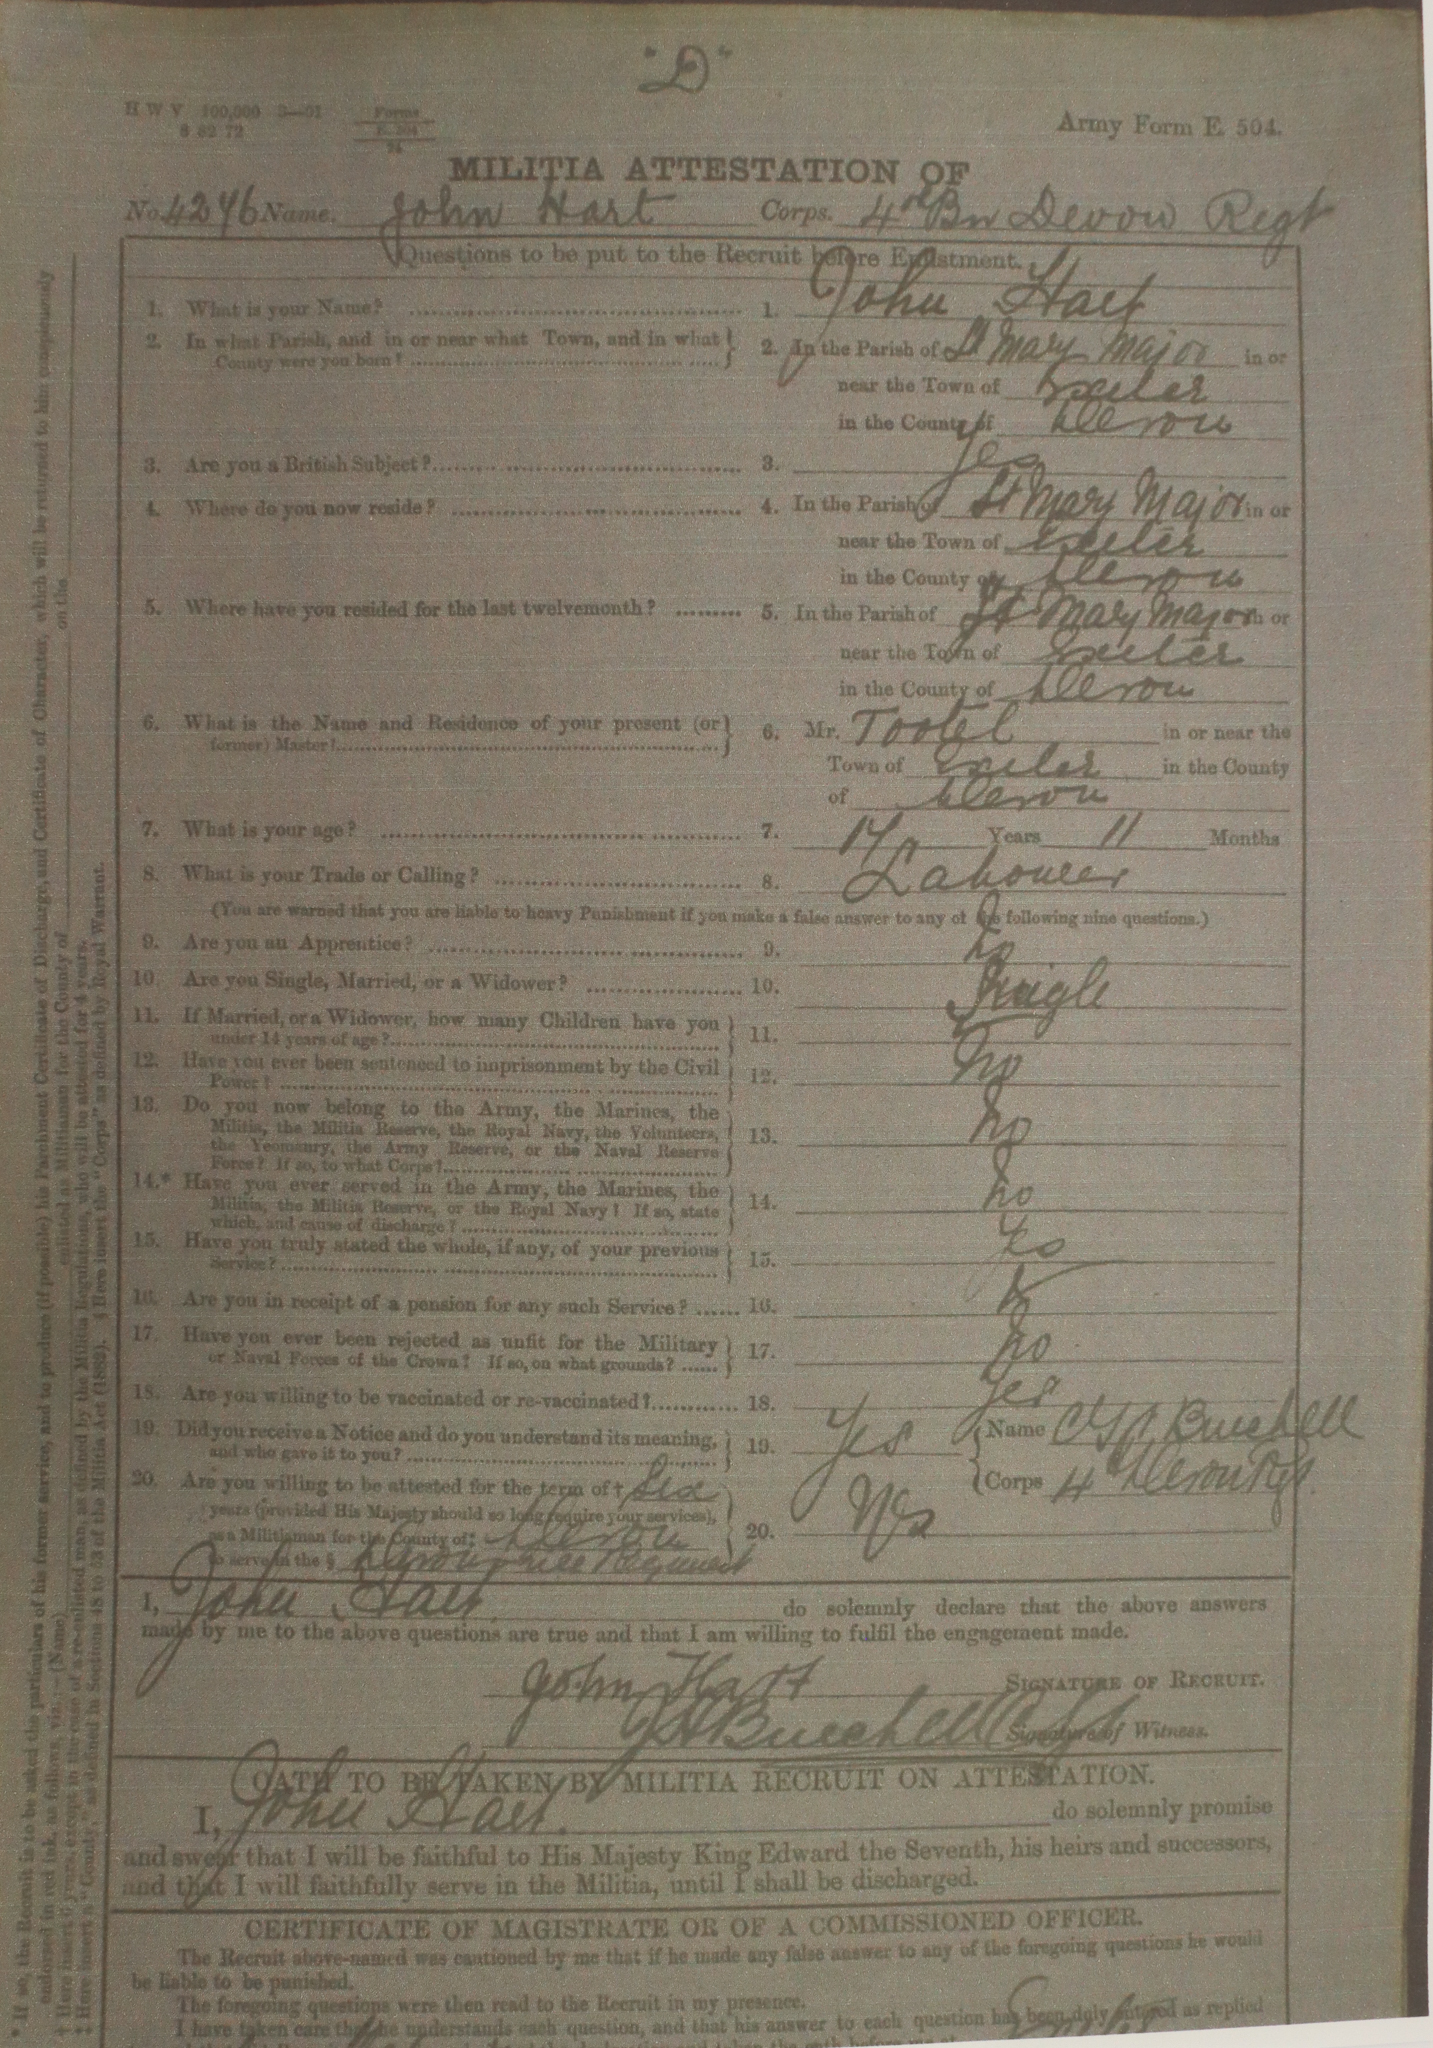 "D"
H W V 100,000 3—01
8 82 72
Forms
E. 504
Army Form E. 504.
MILITIA ATTESTATION OF
No. 4246 Name. John Hart Corps. 4th Bn Devon Regt
Questions to be put to the Recruit before Enlistment.
1. What is your Name? 1. John Hart
2. In what Parish, and in or near what Town, and in what County were you born? 2. In the Parish of St Mary Major in or
near the Town of Exeter
in the County of Devon
3. Are you a British Subject? 3. Yes
4. Where do you now reside? 4. In the Parish of St Mary Major in or
near the Town of Exeter
in the County of Devon
5. Where have you resided for the last twelvemonth? 5. In the Parish of St Mary Major in or
near the Town of Exeter
in the County of Devon
6. What is the Name and Residence of your present (or former) Master? 6. Mr. Tootel in or near the
Town of Exeter in the County
of Devon
7. What is your age? 7. 17 Years 11 Months
8. What is your Trade or Calling? 8. Labourer
(You are warned that you are liable to heavy Punishment if you make a false answer to any of the following nine questions.)
9. Are you an Apprentice? 9. No
10. Are you Single, Married, or a Widower? 10. Single
11. If Married, or a Widower, how many Children have you
under 14 years of age? 11.
12. Have you ever been sentenced to imprisonment by the Civil
Power? 12. No
13. Do you now belong to the Army, the Marines, the
Militia, the Militia Reserve, the Royal Navy, the Volunteers,
the Yeomanry, the Army Reserve, or the Naval Reserve
Force? If so, to what Corps? 13. No
14.* Have you ever served in the Army, the Marines, the
Militia, the Militia Reserve, or the Royal Navy? If so, state
which, and cause of discharge? 14. No
15. Have you truly stated the whole, if any, of your previous
Service? 15. Yes
16. Are you in receipt of a pension for any such Service? 16.
17. Have you ever been rejected as unfit for the Military
or Naval Forces of the Crown? If so, on what grounds? 17. No
18. Are you willing to be vaccinated or re-vaccinated? 18. Yes
19. Did you receive a Notice and do you understand its meaning,
and who gave it to you? 19. Yes Name Burchell
Corps 4 Devon Rgt.
20. Are you willing to be attested for the term of † Six
years (provided His Majesty should so long require your services),
as a Militiaman for the County of ‡ Devon
to serve in the § Devonshire Regiment 20. Yes
I, John Hart do solemnly declare that the above answers
made by me to the above questions are true and that I am willing to fulfil the engagement made.
John Hart SIGNATURE OF RECRUIT.
Burchell Signature of Witness.
OATH TO BE TAKEN BY MILITIA RECRUIT ON ATTESTATION.
I, John Hart. do solemnly promise
and swear that I will be faithful to His Majesty King Edward the Seventh, his heirs and successors,
and that I will faithfully serve in the Militia, until I shall be discharged.
CERTIFICATE OF MAGISTRATE OR OF A COMMISSIONED OFFICER.
The Recruit above-named was cautioned by me that if he made any false answer to any of the foregoing questions he would
be liable to be punished.
The foregoing questions were then read to the Recruit in my presence.
I have taken care that he understands each question, and that his answer to each question has been duly entered as replied
* If so, the Recruit is to be asked the particulars of his former service, and to produce (if possible) his Parchment Certificate of Discharge, and Certificate of Character, which will be returned to him conspicuously
endorsed in red ink, as follows, viz.:—(Name) enlisted as Militiaman for the County of on the
† Here insert 6 years, except in the case of a re-enlisted man, as defined by the Militia Regulations, who will be attested for 4 years.
‡ Here insert a "County," as defined in Sections 48 to 53 of the Militia Act (1882). § Here insert the "Corps" as defined by Royal Warrant.